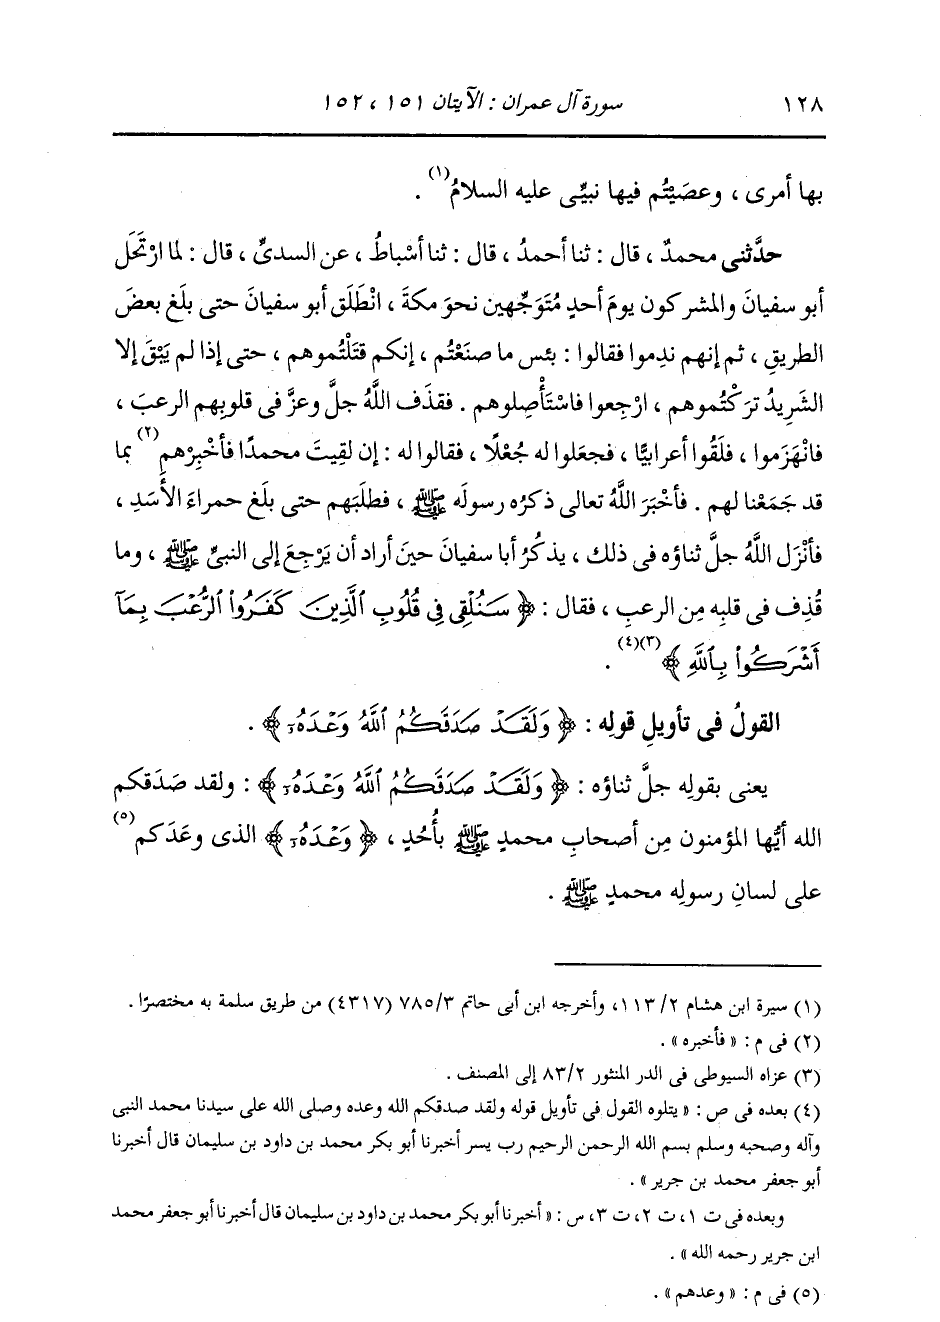 ١٢٨ سورة آل عمران : الآيتان ١٥١ ، ١٥٢
بها أمرى ، وعصَيْتُم فيها نبيِّى عليه السلامُ(١) .
حدَّثنى محمدٌ ، قال : ثنا أحمدُ ، قال : ثنا أسْباطُ ، عن السدىِّ ، قال : لما ارْتَحَل
أبو سفيانَ والمشركون يومَ أحدٍ مُتَوَجِّهين نحوَ مكةَ ، انْطَلَق أبو سفيانَ حتى بلَغ بعضَ
الطريقِ ، ثم إنهم ندِموا فقالوا : بئس ما صنَعْتُم ، إنكم قتَلْتُموهم ، حتى إذا لم يَبْقَ إلا
الشَّرِيدُ ترَكْتُموهم ، ارْجِعوا فاسْتَأْصِلوهم . فقذَف اللَّهُ جلَّ وعزَّ فى قلوبِهم الرعبَ ،
فانْهَزَموا ، فلَقُوا أعرابيًّا ، فجعَلوا له جُعْلًا ، فقالوا له : إن لقِيتَ محمدًا فأخْبِرْهم(٢) بما
قد جَمَعْنا لهم . فأخْبَرَ اللَّهُ تعالى ذكرُه رسولَه ﷺ ، فطلَبَهم حتى بلَغ حمراءَ الأَسَدِ ،
فأنْزَل اللَّهُ جلَّ ثناؤه فى ذلك ، يذكُرُ أبا سفيانَ حينَ أراد أن يَرْجِعَ إلى النبىِّ ﷺ ، وما
قُذِف فى قلبِه مِن الرعبِ ، فقال : ﴿ سَنُلْقِى فِى قُلُوبِ ٱلَّذِينَ كَفَرُوا۟ ٱلرُّعْبَ بِمَآ
أَشْرَكُوا۟ بِٱللَّهِ ﴾(٣)(٤) .
القولُ فى تأويلِ قولِه : ﴿ وَلَقَدْ صَدَقَكُمُ ٱللَّهُ وَعْدَهُۥٓ ﴾ .
يعنى بقولِه جلَّ ثناؤه : ﴿ وَلَقَدْ صَدَقَكُمُ ٱللَّهُ وَعْدَهُۥٓ ﴾ : ولقد صَدَقكم
الله أيُّها المؤمنون مِن أصحابِ محمدٍ ﷺ بأُحُدٍ ، ﴿ وَعْدَهُۥٓ ﴾ الذى وعَدَكم(٥)
على لسانِ رسولِه محمدٍ ﷺ .
(١) سيرة ابن هشام ١١٣/٢، وأخرجه ابن أبى حاتم ٧٨٥/٣ (٤٣١٧) من طريق سلمة به مختصرًا .
(٢) فى م : « فأخبره » .
(٣) عزاه السيوطى فى الدر المنثور ٨٣/٢ إلى المصنف .
(٤) بعده فى ص : « يتلوه القول فى تأويل قوله ولقد صدقكم الله وعده وصلى الله على سيدنا محمد النبى
وآله وصحبه وسلم بسم الله الرحمن الرحيم رب يسر أخبرنا أبو بكر محمد بن داود بن سليمان قال أخبرنا
أبو جعفر محمد بن جرير » .
وبعده فى ت ١، ت ٢، ت ٣، س : « أخبرنا أبو بكر محمد بن داود بن سليمان قال أخبرنا أبو جعفر محمد
ابن جرير رحمه الله » .
(٥) فى م : « وعدهم » .